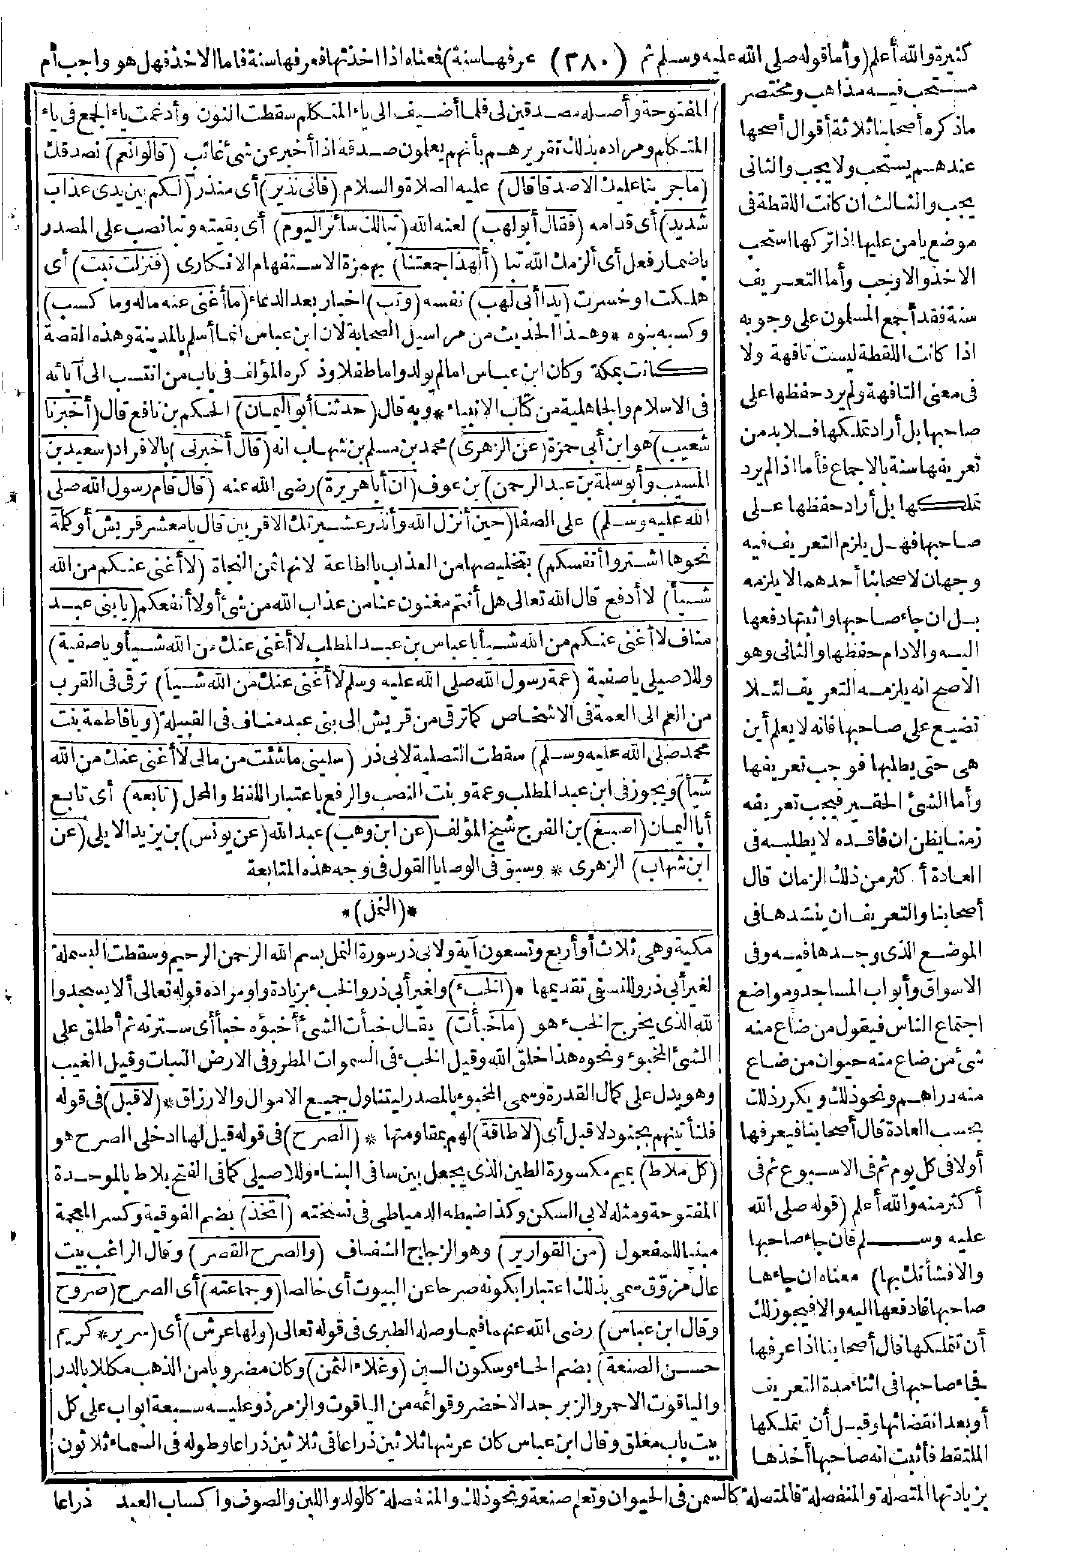 كثيرة والله أعلم (وأما قوله صلى الله عليه وسلم ثم (٢٨٠) عرفها سنة) فمعناه اذا أخذتها فعرفها سنة فاما الاخذ فهل هو واجب أم
مستحب فيه مذاهب ومختصر
ماذكره أصحابنا ثلاثة أقوال أصحها
عندهم يستحب ولا يجب والثانى
يجب والثالث ان كانت اللقطة فى
موضع يأمن عليها اذا تركها استحب
الاخذ والا وجب وأما التعريف
سنة فقد أجمع المسلمون على وجوبه
اذا كانت اللقطة ليست تافهة ولا
فى معنى التافهة ولم يرد حفظها على
صاحبها بل أراد تملكها فلا بد من
تعريفها سنة بالاجماع فأما اذا لم يرد
تملكها بل أراد حفظها على
صاحبها فهل يلزم التعريف فيه
وجهان لاصحابنا أحدهما لا يلزمه
بل ان جاء صاحبها واثبتها دفعها
اليه والا دام حفظها والثانى وهو
الاصح انه يلزمه التعريف لئلا
تضيع على صاحبها فانه لا يعلم أين
هى حتى يطلبها فوجب تعريفها
وأما الشئ الحقير فيجب تعريفه
زمنا يظن ان فاقده لا يطلبه فى
العادة أكثر من ذلك الزمان قال
أصحابنا والتعريف ان ينشدها فى
الموضع الذى وجدها فيه وفى
الاسواق وأبواب المساجد ومواضع
اجتماع الناس فيقول من ضاع منه
شئ من ضاع منه حيوان من ضاع
منه دراهم ونحو ذلك ويكرر ذلك
بحسب العادة قال أصحابنا فيعرفها
أولا فى كل يوم ثم فى الاسبوع ثم فى
أكثر منه والله أعلم (قوله صلى الله
عليه وسلم فان جاء صاحبها
والا فشأنك بها) معناه ان جاءها
صاحبها فادفعها اليه والا فيجوز لك
أن تتملكها قال أصحابنا اذا عرفها
فجاء صاحبها فى اثناء مدة التعريف
أو بعد انقضائها وقبل أن يتملكها
الملتقط فأثبت انه صاحبها أخذها
بزيادتها المتصلة والمنفصلة فالمتصلة كالسمن فى الحيوان وتعلم صنعة ونحو ذلك والمنفصلة كالولد واللبن والصوف واكساب العبد
المفتوحة وأصله مصدقين لى فلما أضيف الى ياء المتكلم سقطت النون وأدغمت ياء الجمع فى ياء
المتكلم ومراده بذلك تقريرهم بأنهم يعلمون صدقه اذا أخبر عن شئ غائب (قالوا نعم) نصدقك
(ماجربنا عليك الا صدقا قال) عليه الصلاة والسلام (فانى نذير) أى منذر (لكم بين يدى عذاب
شديد) أى قدامه (فقال أبو لهب) لعنه الله (تبالك سائر اليوم) أى بقيته وتبا نصب على المصدر
باضمار فعل أى ألزمك الله تبا (ألهذا جمعتنا) بهمزة الاستفهام الانكارى (فنزلت تبت) أى
هلكت اوخسرت (يدا أبى لهب) نفسه (وتب) اخبار بعد الدعاء (ما أغنى عنه ماله وما كسب)
وكسبه بنوه * وهذا الحديث من مراسيل الصحابة لان ابن عباس انما أسلم بالمدينة وهذه القصة
كانت بمكة وكان ابن عباس اما لم يولد واما طفلا وذكره المؤلف فى باب من انتسب الى آبائه
فى الاسلام والجاهلية من كتاب الانبياء * وبه قال (حدثنا أبو اليمان) الحكم بن نافع قال (أخبرنا
شعيب) هو ابن أبى حمزة (عن الزهرى) محمد بن مسلم بن شهاب انه (قال أخبرنى) بالافراد (سعيد بن
المسيب وأبو سلمة بن عبد الرحمن) بن عوف (ان أبا هريرة) رضى الله عنه (قال قام رسول الله صلى
الله عليه وسلم) على الصفا (حين أنزل الله وأنذر عشيرتك الاقربين قال يا معشر قريش أو كلمة
نحوها اشتروا أنفسكم) بتخليصها من العذاب بالطاعة لانها ثمن النجاة (لا أغنى عنكم من الله
شيأ) لا أدفع قال الله تعالى هل أنتم مغنون عنا من عذاب الله من شئ أو لا أنفعكم (يا بنى عبد
مناف لا أغنى عنكم من الله شيأ يا عباس بن عبد المطلب لا أغنى عنك من الله شيأ ويا صفية)
وللاصيلى يا صفية (عمة رسول الله صلى الله عليه وسلم لا أغنى عنك من الله شيأ) ترقى فى القرب
من العم الى العمة فى الاشخاص كما ترقى من قريش الى بنى عبد مناف فى القبيلة (ويا فاطمة بنت
محمد صلى الله عليه وسلم) سقطت التصلية لابى ذر (سلينى ماشئت من مالى لا أغنى عنك من الله
شيأ) ويجوز فى ابن عبد المطلب وعمة وبنت النصب والرفع باعتبار اللفظ والمحل (تابعه) أى تابع
أبا اليمان (اصبغ) بن الفرج شيخ المؤلف (عن ابن وهب) عبد الله (عن يونس) بن يزيد الايلى (عن
ابن شهاب) الزهرى * وسبق فى الوصايا القول فى وجه هذه المتابعة
*(النمل)*
مكية وهى ثلاث أو أربع وتسعون آية ولابى ذر سورة النمل بسم الله الرحمن الرحيم وسقطت البسملة
لغير أبى ذر وللنسفى تقديمها * (الخبء) ولغير أبى ذر والخبء بزيادة واو ومراده قوله تعالى ألا يسجدوا
لله الذى يخرج الخبء هو (ماخبأت) يقال خبأت الشئ أخبؤه خبأ أى سترته ثم أطلق على
الشئ المخبوء ونحوه هذا خلق الله وقيل الخبء فى السموات المطر وفى الارض النبات وقيل الغيب
وهو يدل على كمال القدرة وسمى المخبوء بالمصدر ليتناول جميع الاموال والارزاق * (لا قبل) فى قوله
فلنأتينهم بجنود لا قبل أى (لا طاقة) لهم بمقاومتها * (الصرح) فى قوله قيل لها ادخلى الصرح هو
(كل ملاط) بميم مكسورة الطين الذى يجعل بين سافى البناء وللاصيلى كما فى الفتح بلاط بالموحدة
المفتوحة ومثله لابى السكن وكذا ضبطه الدمياطى فى نسخته (اتخذ) بضم الفوقية وكسر المعجمة
مبنيا للمفعول (من القوارير) وهو الزجاج الشفاف (والصرح القصر) وقال الراغب بيت
عال مزوق سمى بذلك اعتبارا بكونه صرحا عن البيوت أى خالصا (وجماعته) أى الصرح (صروح
وقال ابن عباس) رضى الله عنهما فيما وصله الطبرى فى قوله تعالى (ولها عرش) أى (سرير * كريم
حسن الصنعة) بضم الحاء وسكون السين (وغلاء الثمن) وكان مضروبا من الذهب مكللا بالدر
والياقوت الاحمر والزبرجد الاخضر وقوائمه من الياقوت والزمرذ وعليه سبعة ابواب على كل
بيت باب مغلق وقال ابن عباس كان عرشها ثلاثين ذراعا فى ثلاثين ذراعا وطوله فى السماء ثلاثون
ذراعا